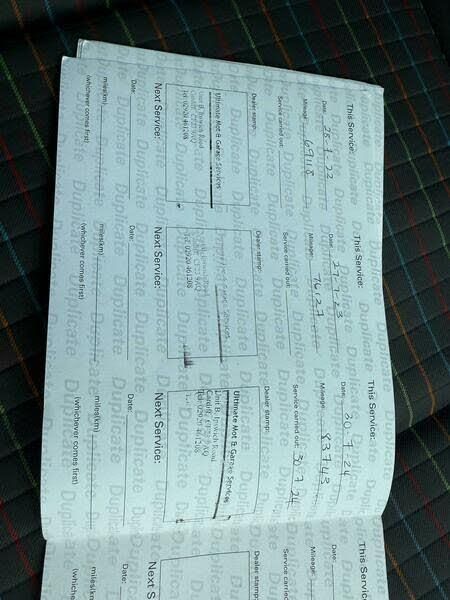 This Service:
Date: 28.7.22
Mileage: 69118
Service carried out:
Dealer stamp:
Ultimate Mot & Garage Services
Unit B, Ipswich Road
Cardiff, CF23 9AQ
Tel: 02920 461208
Next Service:
Date:
miles(km)
(whichever comes first)
This Service:
Date: 27.7.23
Mileage:
Service carried out:
Dealer stamp:
Tel: 02920 461208
Next Service:
Date:
miles(km)
(whichever comes first)
This Service:
Date: 30.7.24
Mileage: 83743
Service carried out: 30.7.24
Dealer stamp:
Ultimate Mot & Garage Services
Unit B, Ipswich Road
Cardiff, CF23 9AQ
Tel: 02920 461208
Next Service:
Date:
miles(km)
(whichever comes first)
This Service:
Date:
Mileage:
Service carried
Dealer stamp:
Next S
Date:
miles(km)
(whichever
Duplicate Duplicate Duplicate Duplicate